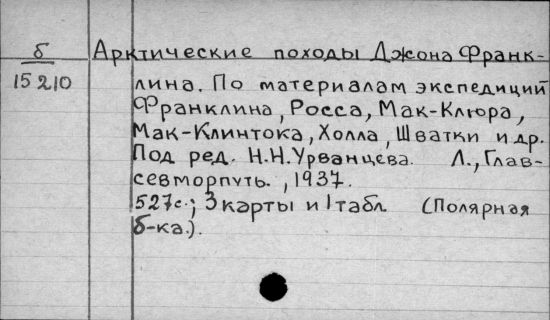 б Арктические походы Джона Франк-
15210 лина. По материалам экспедиций
Франклина, Росса, Мак-Клюра,
Мак-Клинтока, Холла, Шватки и др.
Под ред. Н.Н.Урванцева. Л., Глав-
севморпуть. , 1937.
527с.; 3 карты и 1 табл (Полярная
б-ка.).